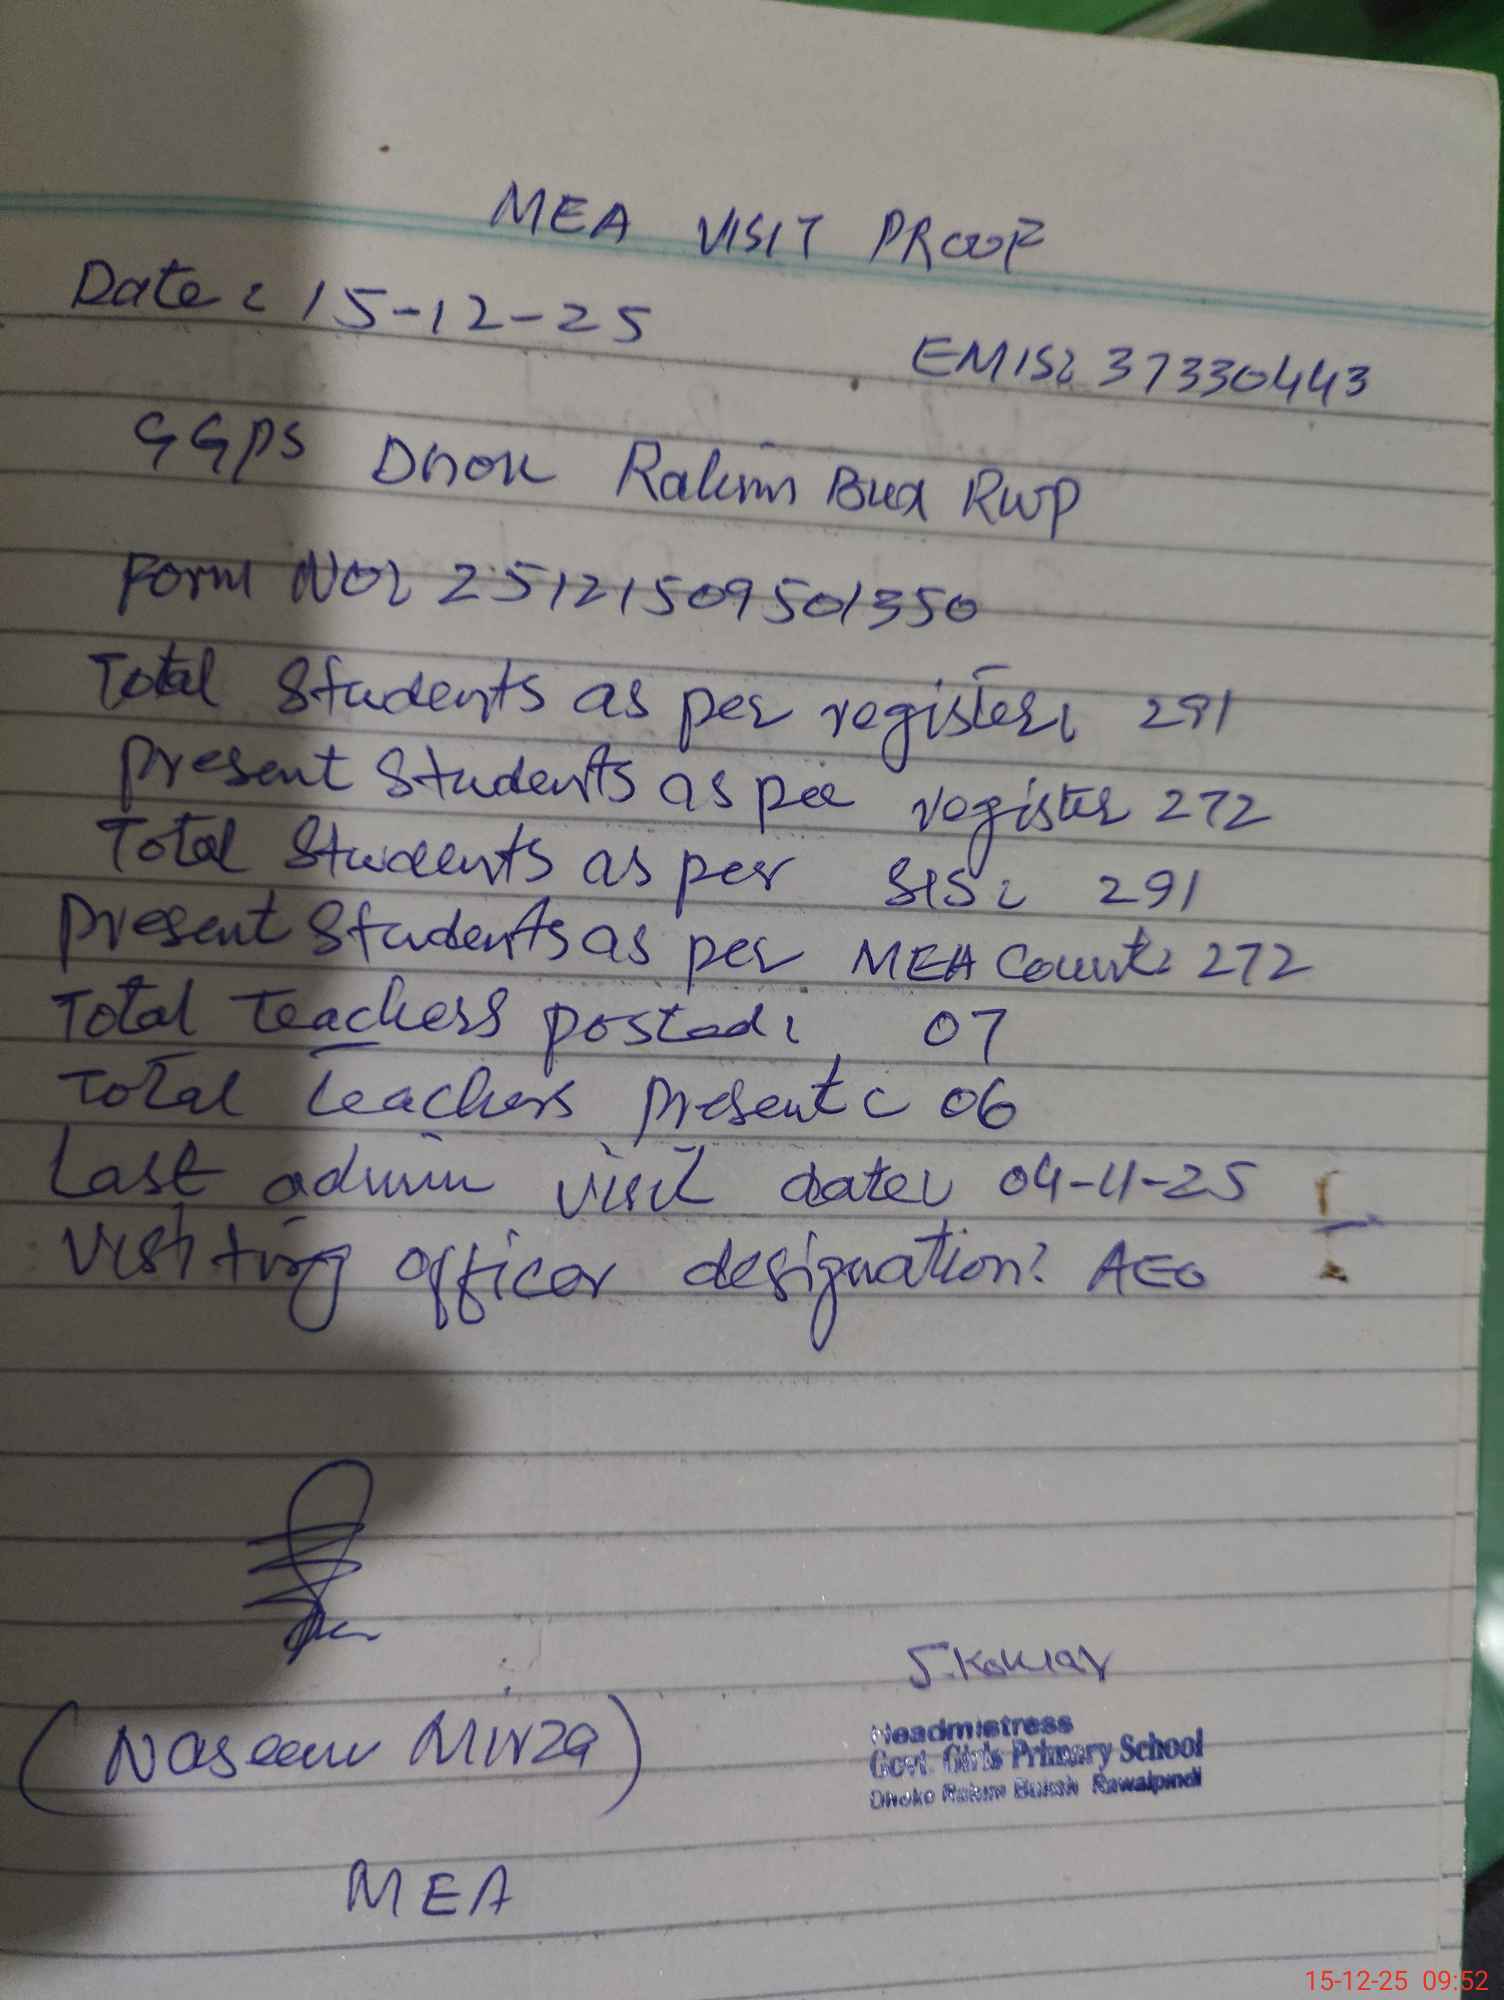 MEA VISIT PROOF
Date: 15-12-25
EMIS: 37330443
GGPS Dhok Rahim Bux RWP
Form NO: 25121509501350
Total Students as per register: 291
present Students as per register 272
Total Students as per SIS: 291
present Students as per MEA Count: 272
Total Teachers posted: 07
Total Teachers present: 06
Last admin visit date: 04-11-25
Visiting officer designation: AEO
(Naseem Mirza)
MEA
Headmistress
Govt. Girls Primary School
Dhoke Rahim Buksh Rawalpindi
15-12-25 09:52